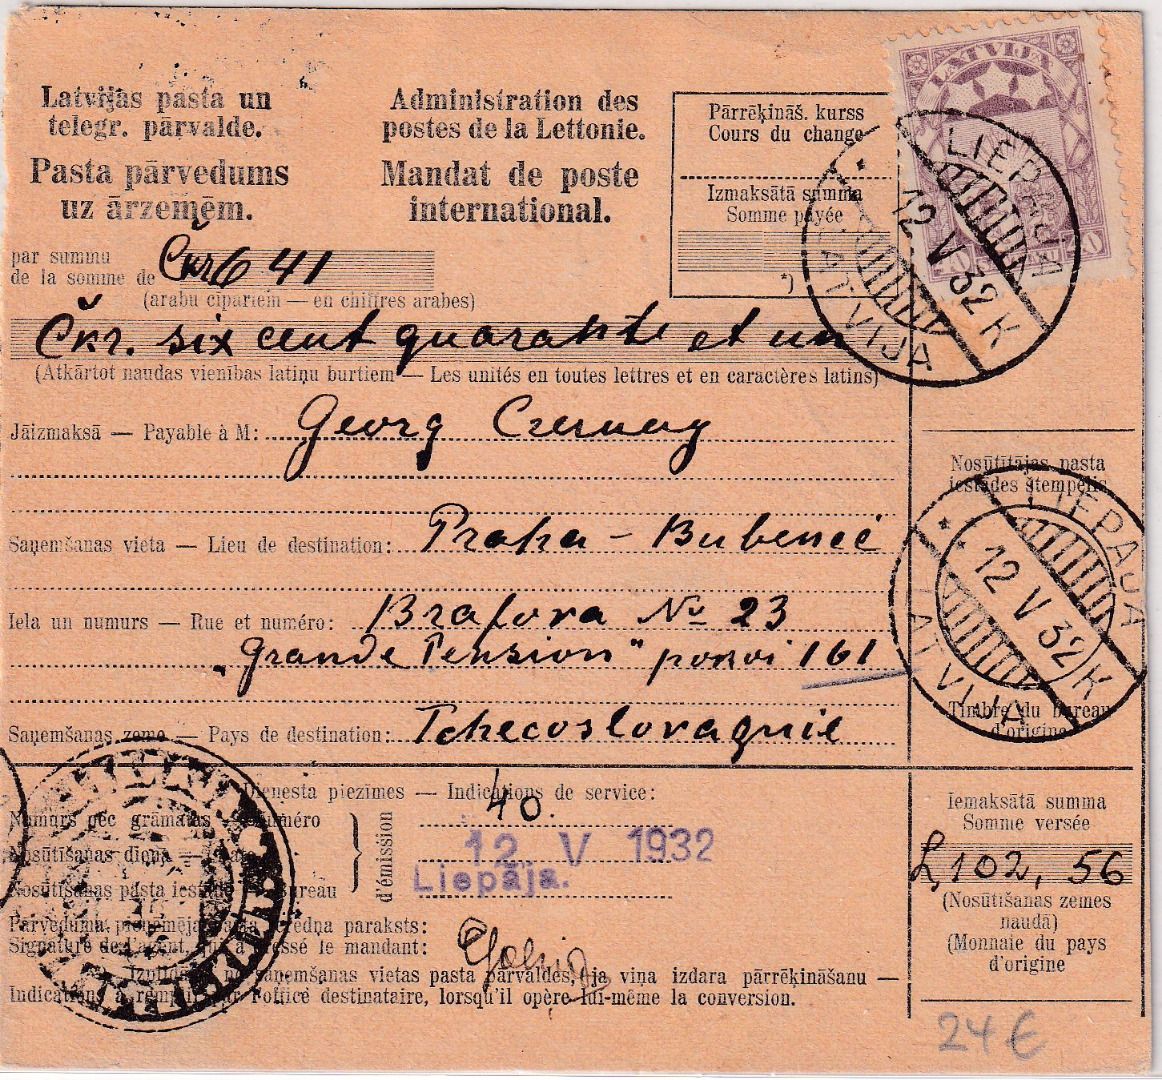 Latvijas pasta un
telegr. pārvalde.
Pasta pārvedums
uz ārzemēm.
Administration des
postes de la Lettonie.
Mandat de poste
international.
Pārrēķināš. kurss
Cours du change
Izmaksātā summa
Somme payée
LATVIJA
LIEPĀJA
12 V 32
K
LATVIJA
par summu
de la somme de Čkr 641
(arabu cipariem — en chiffres arabes)
Čkr. six cent quarante et un
(Atkārtot naudas vienības latiņu burtiem — Les unités en toutes lettres et en caractères latins)
Jāizmaksā — Payable à M: Georg Czernay
Nosūtītājas pasta
iestādes stempelis
LIEPAJA
12 V 32
K
LATVIJA
Timbre du bureau
d'origine
Saņemšanas vieta — Lieu de destination: Praha - Bubeneč
Iela un numurs — Rue et numéro: No 23
„Grande Pension" pokoi 161
Saņemšanas zeme — Pays de destination: Tchecoslovaquie
Dienesta piezīmes — Indications de service:
Numurs pēc grāmatas — Numéro 40.
Nosūtīšanas diena — 12 V 1932
Nosūtīšanas pasta iestāde — Bureau Liepāja.
d'émission
Pārveduma pieņēmēja paraksts:
Signature de l'agent, qui a dressé le mandat:
Izpilda no saņemšanas vietas pasta pārvaldes, ja viņa izdara pārrēķināšanu —
Indications à remplir par l'office destinataire, lorsqu'il opère lui-même la conversion.
Iemaksātā summa
Somme versée
L, 102, 56
(Nosūtīšanas zemes
naudā)
(Monnaie du pays
d'origine
24 €